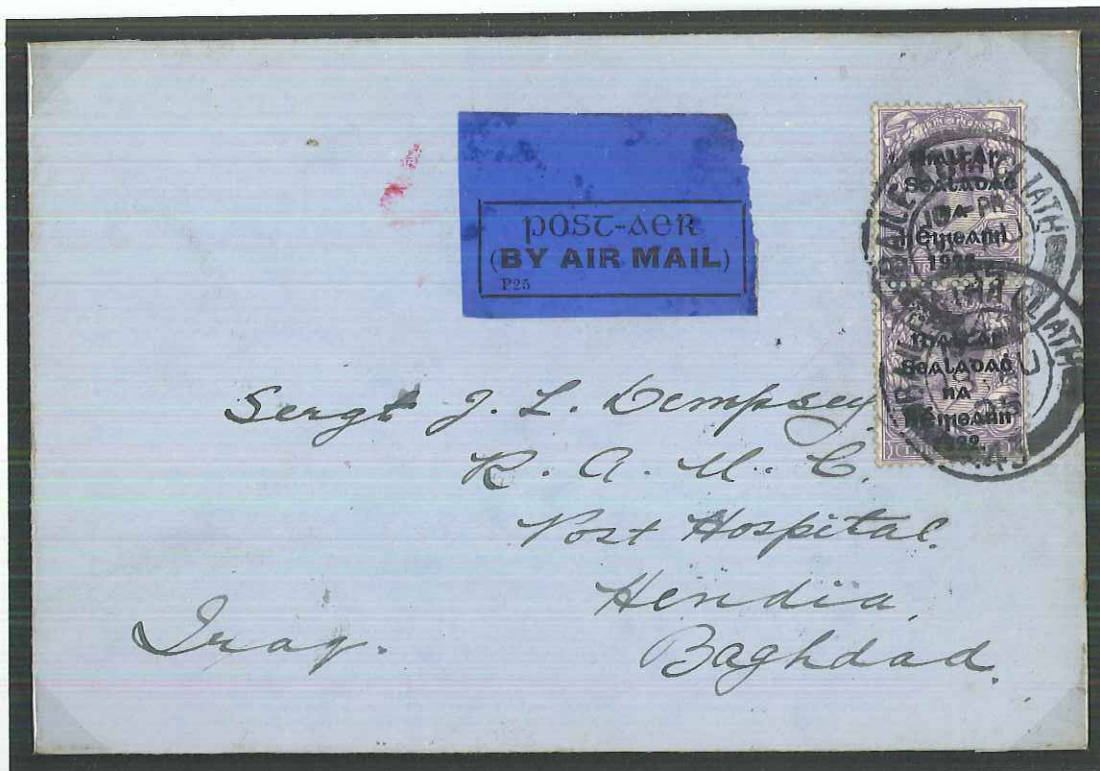 POST-AER
(BY AIR MAIL)
P25
Rialtar
Sealadaċ
na
hÉireann
1922
Rialtar
Sealadaċ
na
hÉireann
1922.
BAILE ÁTHA CLIATH
BAILE ÁTHA CLIATH
Sergt J. L. Dempsey
R. A. M. C.
Post Hospital.
Hendia,
Baghdad.
Iraq.